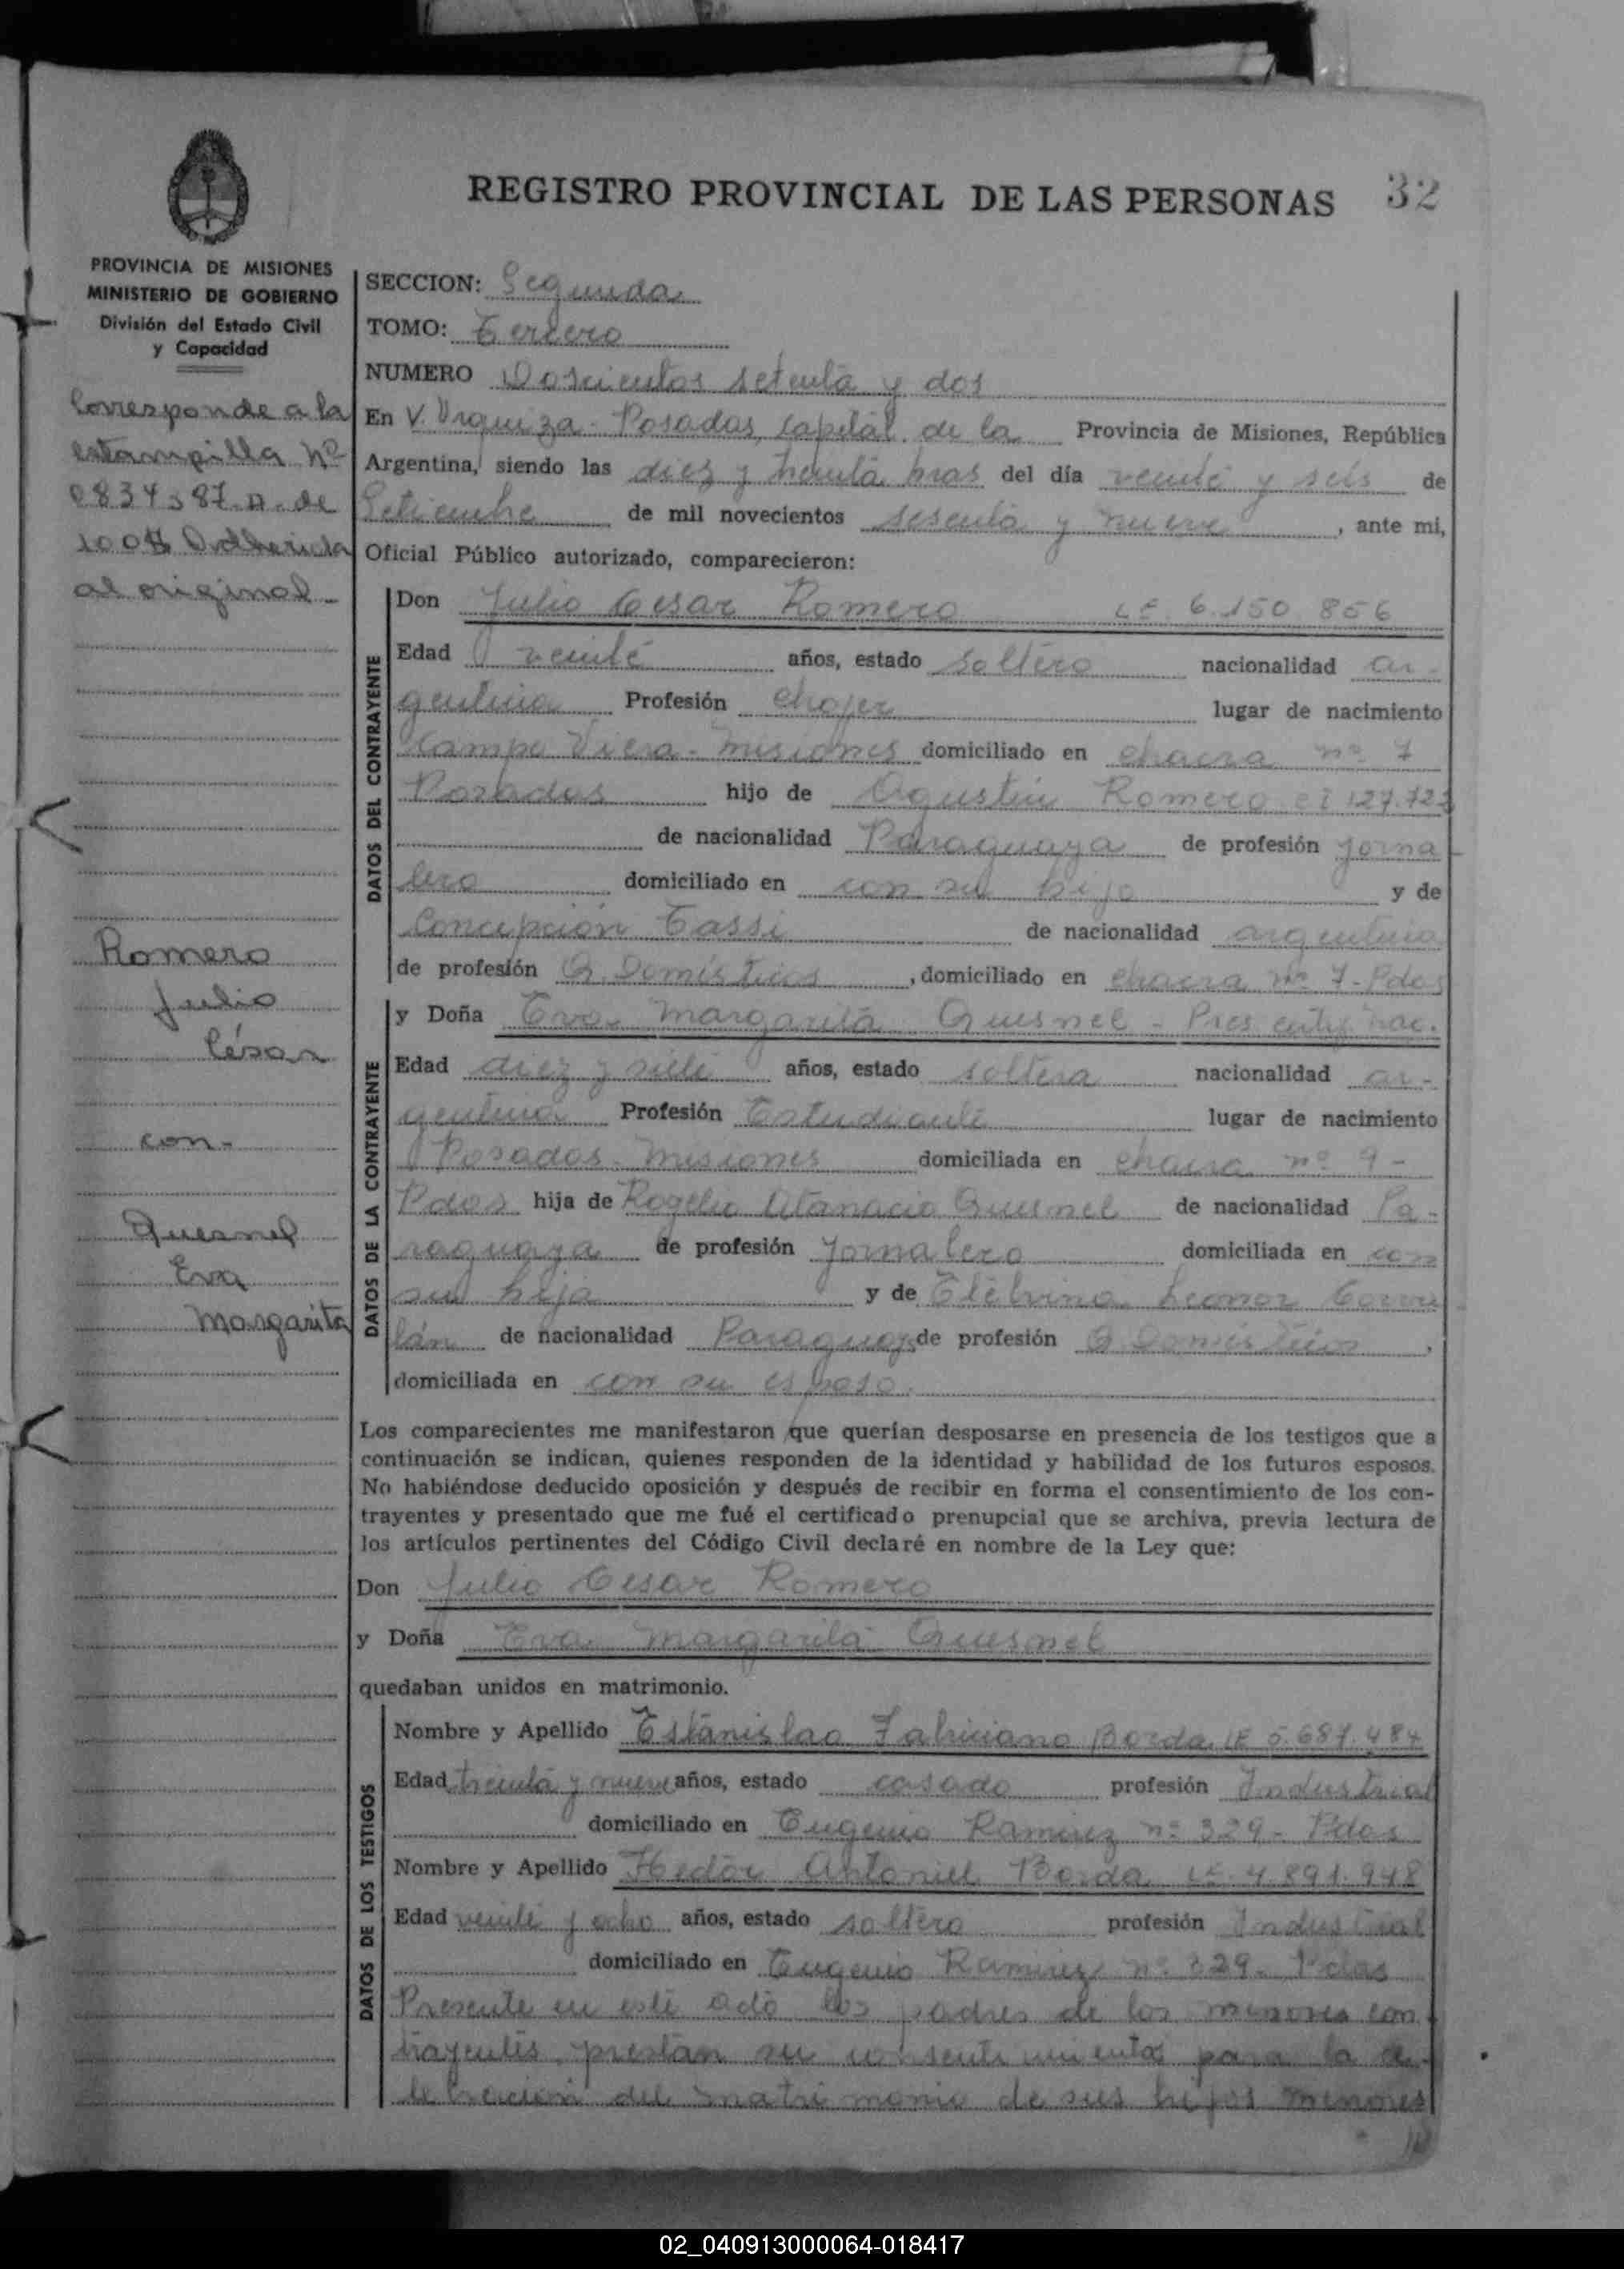 REGISTRO PROVINCIAL DE LAS PERSONAS 32
PROVINCIA DE MISIONES
MINISTERIO DE GOBIERNO
División del Estado Civil
y Capacidad
Corresponde a la
estampilla Nº
0834387.A. de
100$ Adherida
al original -
Romero
Julio
César
con-
Quesnel
Eva
Margarita
SECCION: Segunda
TOMO: Tercero
NUMERO Doscientos setenta y dos
En V. Urquiza - Posadas, Capital de la Provincia de Misiones, República
Argentina, siendo las diez y treinta hras del día veinte y seis de
Setiembre de mil novecientos sesenta y nueve, ante mi,
Oficial Público autorizado, comparecieron:
DATOS DEL CONTRAYENTE
Don Julio Cesar Romero LE. 6.150.856
Edad veinte años, estado soltero nacionalidad ar-
gentina Profesión chofer lugar de nacimiento
Campo Viera - Misiones domiciliado en chacra nº 7
Posadas hijo de Agustín Romero CI 127.723
de nacionalidad Paraguaya de profesión jorna-
lero domiciliado en con su hijo y de
Concepción Tassi de nacionalidad argentina
de profesión Q. Domésticos, domiciliado en chacra nº 7 - Pdas
DATOS DE LA CONTRAYENTE
y Doña Eva Margarita Quesnel - Pres. certif. nac.
Edad diez y siete años, estado soltera nacionalidad ar-
gentina Profesión Estudiante lugar de nacimiento
Posadas - Misiones domiciliada en chacra nº 9 -
Pdas hija de Rogelio Atanacio Quesnel de nacionalidad Pa-
raguaya de profesión Jornalero domiciliada en con
su hija y de Etelvina Leonor
de nacionalidad Paraguaya de profesión Q. Domésticos,
domiciliada en con su esposo.
Los comparecientes me manifestaron que querían desposarse en presencia de los testigos que a
continuación se indican, quienes responden de la identidad y habilidad de los futuros esposos.
No habiéndose deducido oposición y después de recibir en forma el consentimiento de los con-
trayentes y presentado que me fué el certificado prenupcial que se archiva, previa lectura de
los artículos pertinentes del Código Civil declaré en nombre de la Ley que:
Don Julio Cesar Romero
y Doña Eva Margarita Quesnel
quedaban unidos en matrimonio.
DATOS DE LOS TESTIGOS
Nombre y Apellido Estanislao Fabriciano Borda LE 5.687.484
Edad treinta y nueve años, estado casado profesión Industrial
domiciliado en Eugenio Ramirez nº 329 - Pdas
Nombre y Apellido Hector Antoniel Borda LE. 4.891.948
Edad veinte y ocho años, estado soltero profesión Industrial
domiciliado en Eugenio Ramirez nº 329 - Pdas
Presente en este acto los padres de los menores con
trayentes, prestan su consentimiento para la ce-
lebración del matrimonio de sus hijos menores
02_040913000064-018417